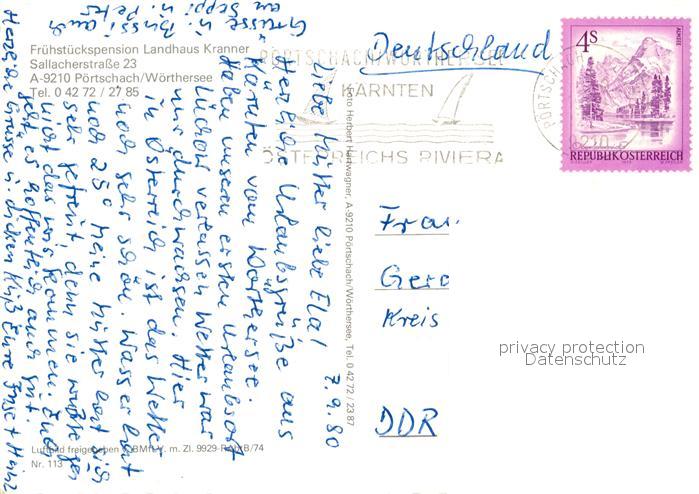 Frühstückspension Landhaus Kranner
Sallacherstraße 23
A-9210 Pörtschach/Wörthersee
Tel. 0 42 72 / 27 85
PÖRTSCHACH/WÖRTHERSEE
KÄRNTEN
ÖSTERREICHS RIVIERA
Deutschland
4s
ALMSEE
REPUBLIK ÖSTERREICH
PÖRTSCHACH
9210
7.9.80
Liebe Mutter liebe Ela!
Herzliche Urlaubsgrüße aus
Kärnten vom Wörthersee.
Haben unseren ersten Urlaubsort
verlassen Wetter war
nur durchwachsen. Hier
in Österreich ist das Wetter
noch sehr schön. Wasser hat
noch 23° meine Mutter hat sich
sehr gefreut, denn sie wußte
nicht das wir kommen. Euch
geht es hoffentlich auch gut.
Herzliche Grüsse u. dicken Kuß Eure Inge + Heinz
Grüsse u. Bussi auch
an Seppi u. Peter
Foto Herbert Hettwagner, A-9210 Pörtschach/Wörthersee, Tel. 0 42 72 / 23 87
Frau
Gera
Kreis
DDR
privacy protection
Datenschutz
Luftbild freigegeben v. BMfLV. m. Zl. 9929-RAbtB/74
Nr. 113